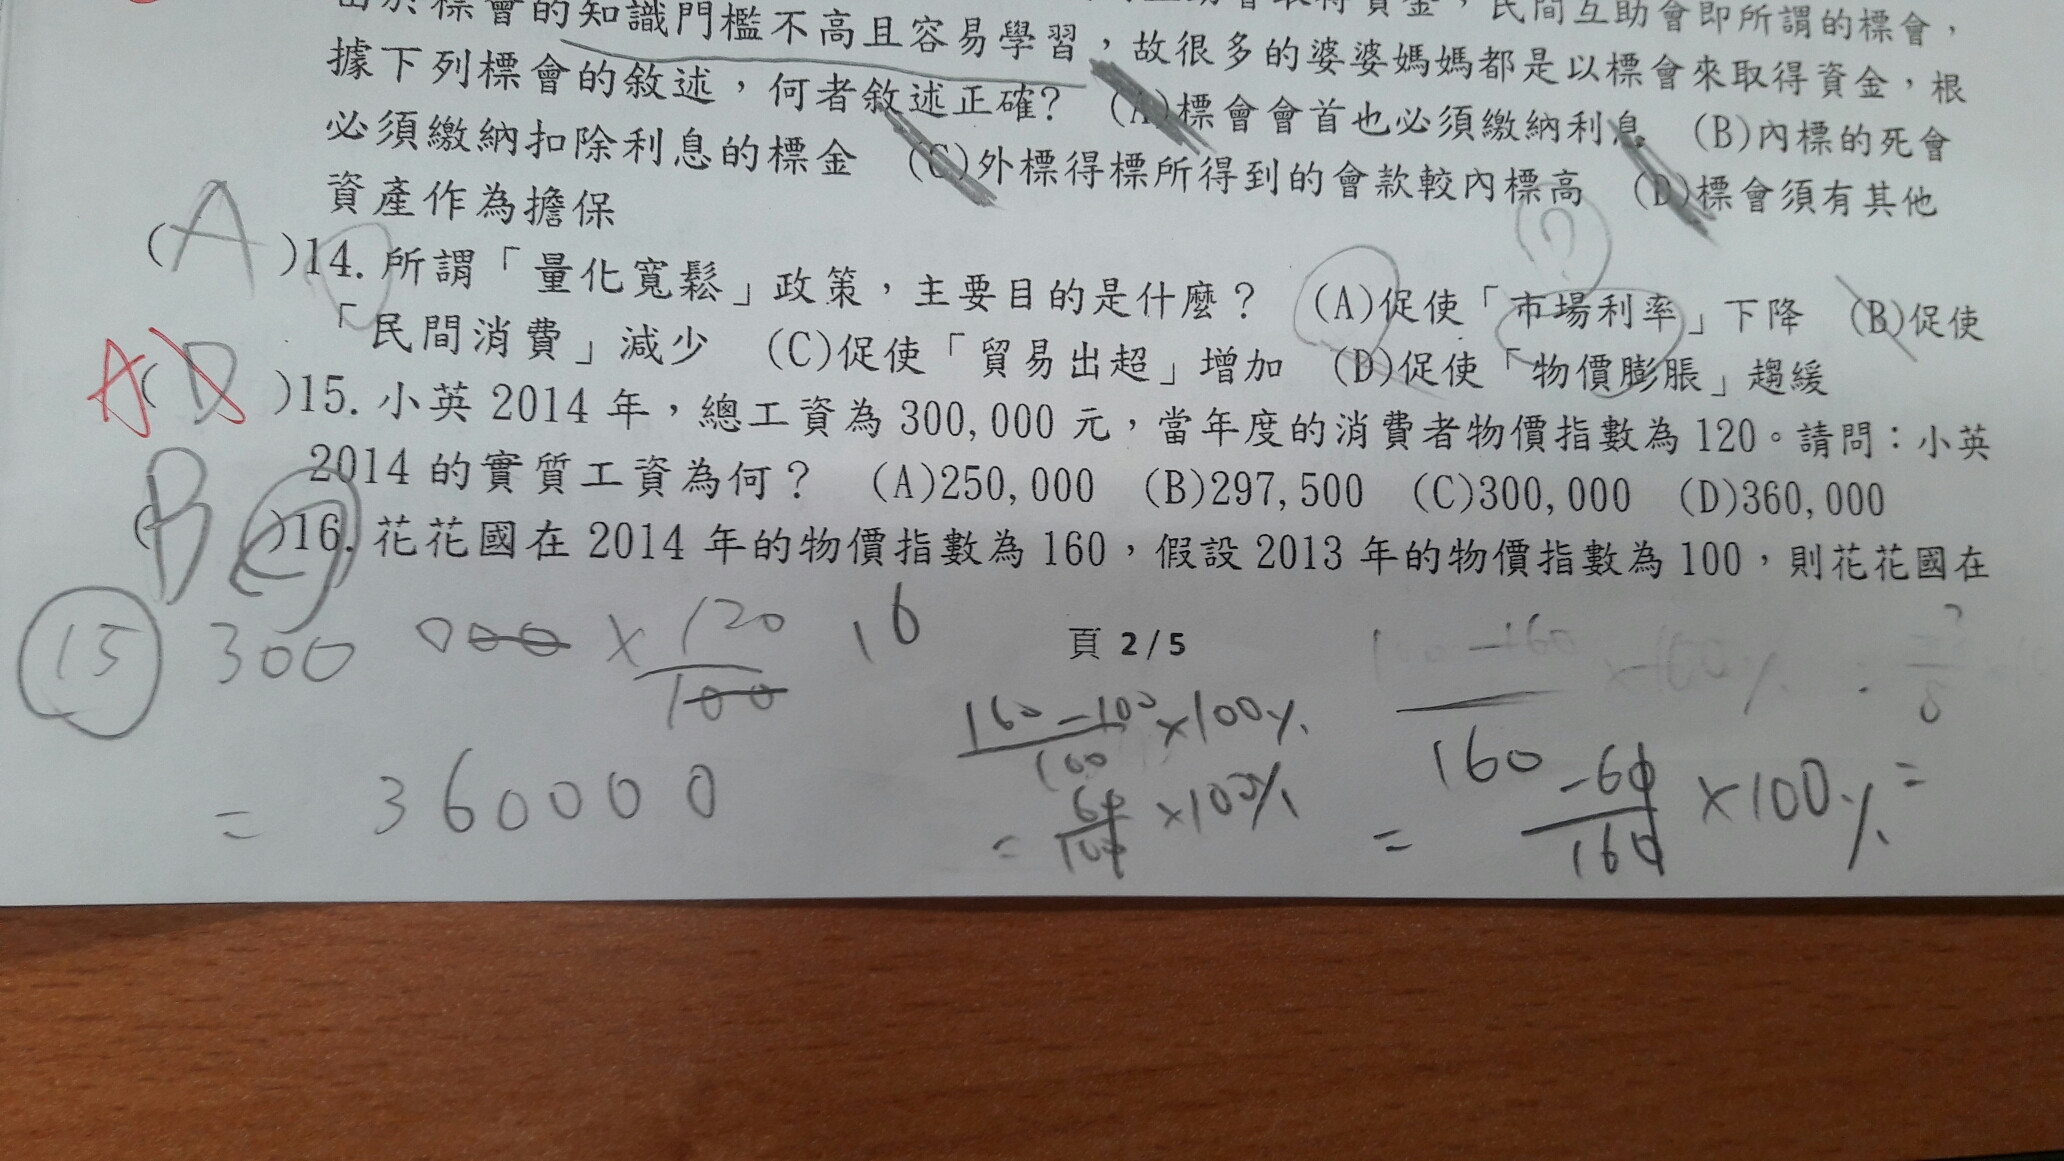 標會的知識門檻不高且容易學習，故很多的婆婆媽媽都是以標會來取得資金，根
民間互助會即所謂的標會，
據下列標會的敘述，何者敘述正確? (A)標會會首也必須繳納利息 (B)內標的死會
必須繳納扣除利息的標金 (C)外標得標所得到的會款較內標高 (D)標會須有其他
資產作為擔保
(A)14. 所謂「量化寬鬆」政策，主要目的是什麼？ (A)促使「市場利率」下降 (B)促使
?
「民間消費」減少 (C)促使「貿易出超」增加 (D)促使「物價膨脹」趨緩
A(D)15. 小英 2014 年，總工資為 300,000 元，當年度的消費者物價指數為 120。請問：小英
2014 的實質工資為何？ (A)250,000 (B)297,500 (C)300,000 (D)360,000
(B)16. 花花國在 2014 年的物價指數為 160，假設 2013 年的物價指數為 100，則花花國在
頁 2 / 5
15 300 000 × 120/100
= 360000
16 160-100/100 ×100%
= 60/100 ×100%
100-160/160 ×100%
= -60/160 ×100% =